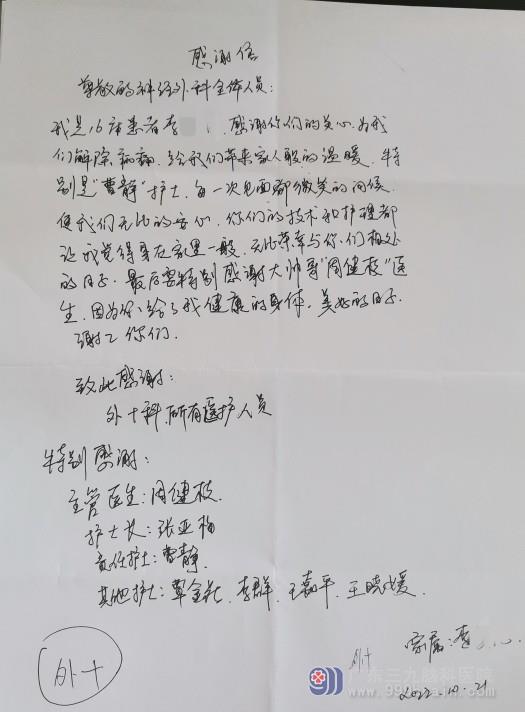 感谢信
尊敬的神经外科全体人员:
我是16床患者李 感谢你们的关心.为我
们解除病痛,给我们带来家人般的温暖,特
别是"曹静"护士,每一次见面都微笑的问候.
使我们无比的安心,你们的技术和护理都
让我觉得身在家里一般,无比荣幸与你们相处
的日子.最后要特别感谢大帅哥"周健枝"医
生,因为你给了我健康的身体,美好的日子.
谢々你们.
致此感谢:
外十科,所有医护人员
特别感谢:
主管医生:周健枝.
护士长:张亚梅
责任护士:曹静.
其他护士:覃金花,李群,王嘉平,王晓媛.
外十
外十
家属:李 心
2022.10.21
广东三九脑科医院